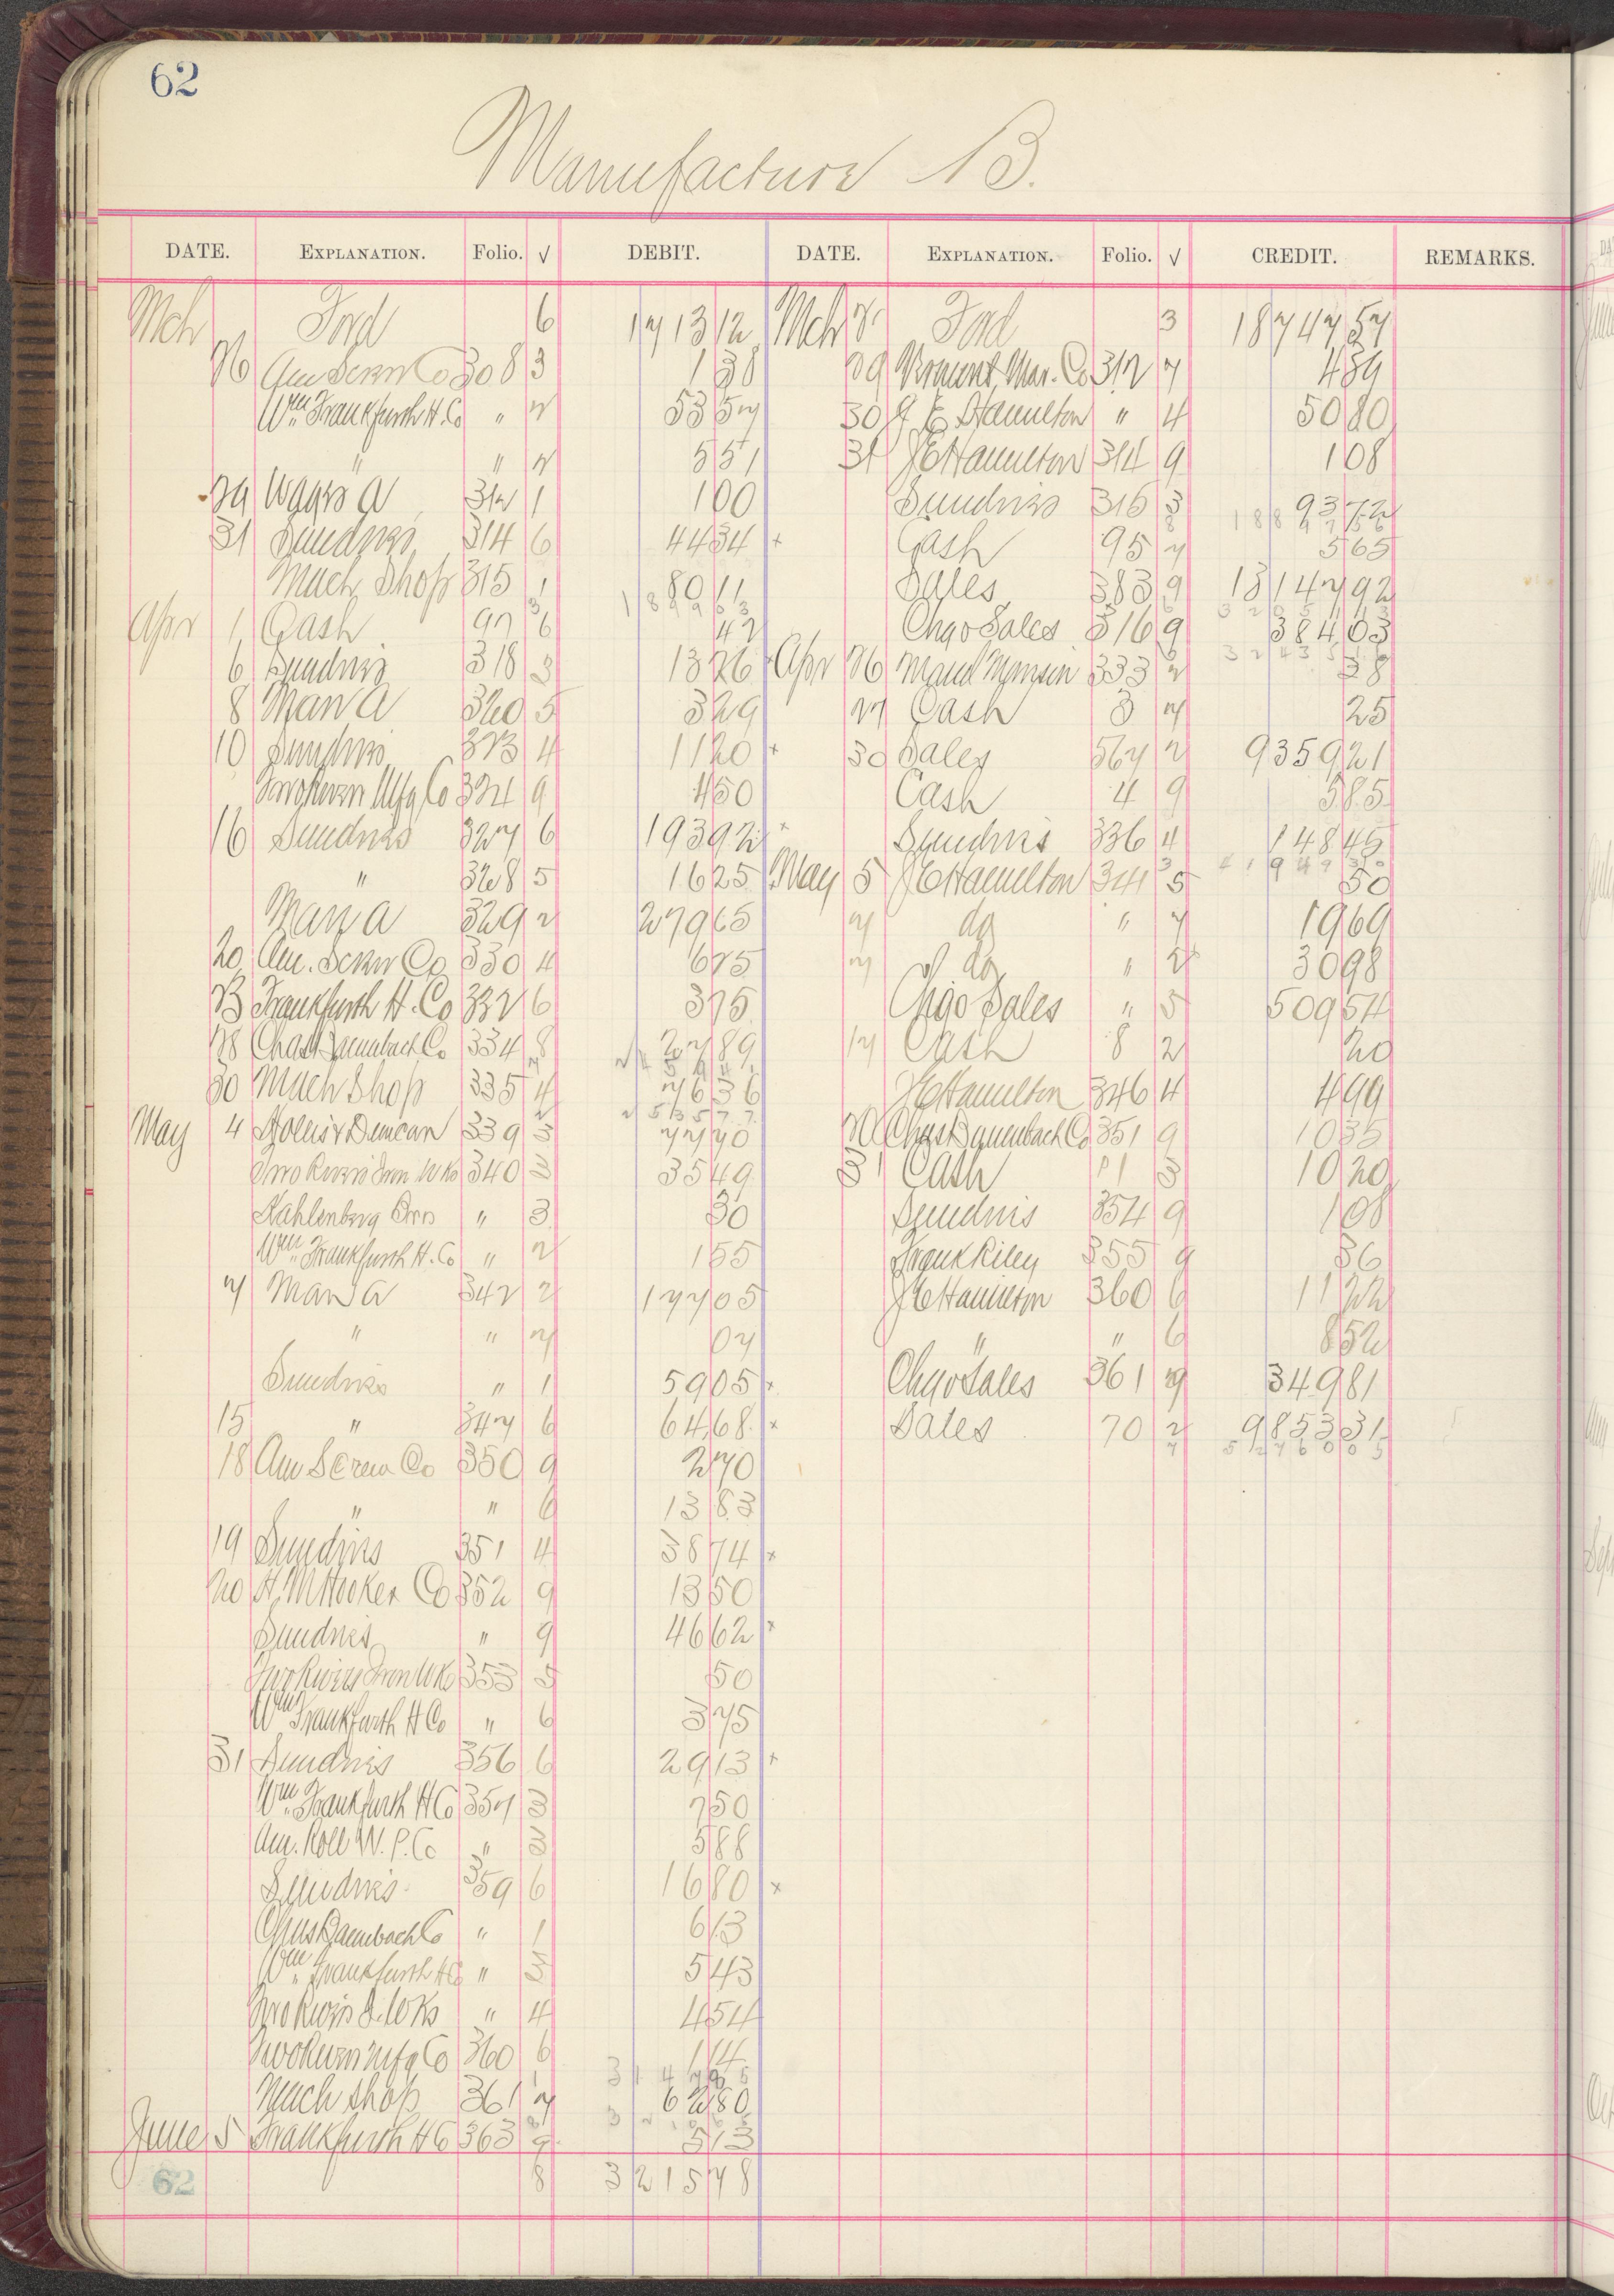 62
Manufacture B.
DATE. EXPLANATION. Folio. √ DEBIT. DATE. EXPLANATION. Folio. √ CREDIT. REMARKS.
Mch Ford 6 1713 12 Mch Ford 3 18747 57
26 Am Screw Co 308 3 1 38 29 Vermont Mar. Co 312 7 4 39
Wm Frankfurth H. Co " 2 53 57 30 J E Hamilton " 4 50 80
" " 2 5 51 31 J E Hamilton 314 9 1 08
29 Wages A 312 1 1 00 Sundries 315 3 93 72
31 Sundries 314 6 44 34 x Cash 95 7 5 65
Mach Shop 315 1 80 11 Sales 383 9 13147 92
Apr 1 Cash 97 6 42 Chgo Sales 316 9 384 03
6 Sundries 318 3 13 26 x Apr 26 333 2 38
8 Man A 320 5 3 29 27 Cash 3 7 25
10 Sundries 323 4 11 20 x 30 Sales 567 2 9359 21
Two Rivers Mfg Co 324 9 4 50 Cash 4 9 5 85
16 Sundries 327 6 193 92 x Sundries 336 4 148 45
" 328 5 16 25 May 5 J E Hamilton 341 5 50
Man A 329 2 279 65 7 do " 7 19 69
20 Am. Screw Co 330 4 6 25 7 do " 2 30 98
23 Frankfurth H. Co 332 6 3 75 Chgo Sales " 5 509 54
28 Chas Baumbach Co 334 8 27 89 17 Cash 8 2 20
30 Mach Shop 335 4 76 36 J E Hamilton 346 4 4 99
May 4 Hollis & Duncan 339 3 77 70 20 Chas Baumbach Co 351 9 10 35
Two Rivers Iron Wks 340 3 35 49 31 Cash 11 3 10 20
Kahlenberg Bros " 3 30 Sundries 354 9 1 08
Wm Frankfurth H. Co " 2 1 55 Frank Riley 355 9 36
7 Man A 342 2 177 05 J E Hamilton 360 6 11 22
" " 7 07 " " 6 8 52
Sundries " 1 59 05 x Chgo Sales 361 7 349 81
15 " 347 6 64 68 x Sales 70 2 9853 31
18 Am Screw Co 350 9 2 70
" " 6 13 83
19 Sundries 351 4 38 74 x
20 H. M Hooker Co 352 9 13 50
Sundries " 9 46 62 x
Two Rivers Iron Wks 353 5 50
Wm Frankfurth H Co " 6 3 75
31 Sundries 356 6 29 13 x
Wm Frankfurth H Co 357 3 7 50
Am. Roll W. P. Co " 3 5 88
Sundries 359 6 16 80 x
Chas Baumbach Co " 1 6 13
Wm Frankfurth H Co " 3 5 43
Two Rivers I. Wks " 4 4 54
Two Rivers Mfg Co 360 6 1 14
Mach Shop 361 7 62 80
June 5 Frankfurth H Co 363 9 5 13
62 8 3215 78